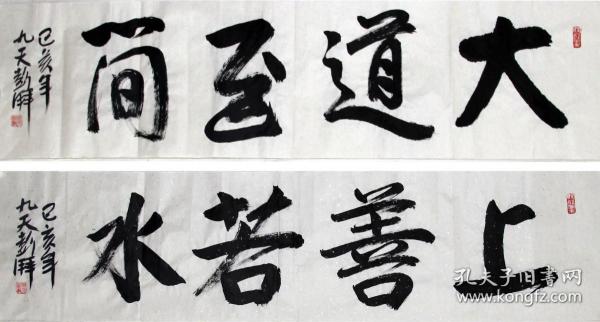 大道至简
己亥年
九天彭湃
上善若水
己亥年
九天彭湃
孔夫子旧书网
www.kongfz.com